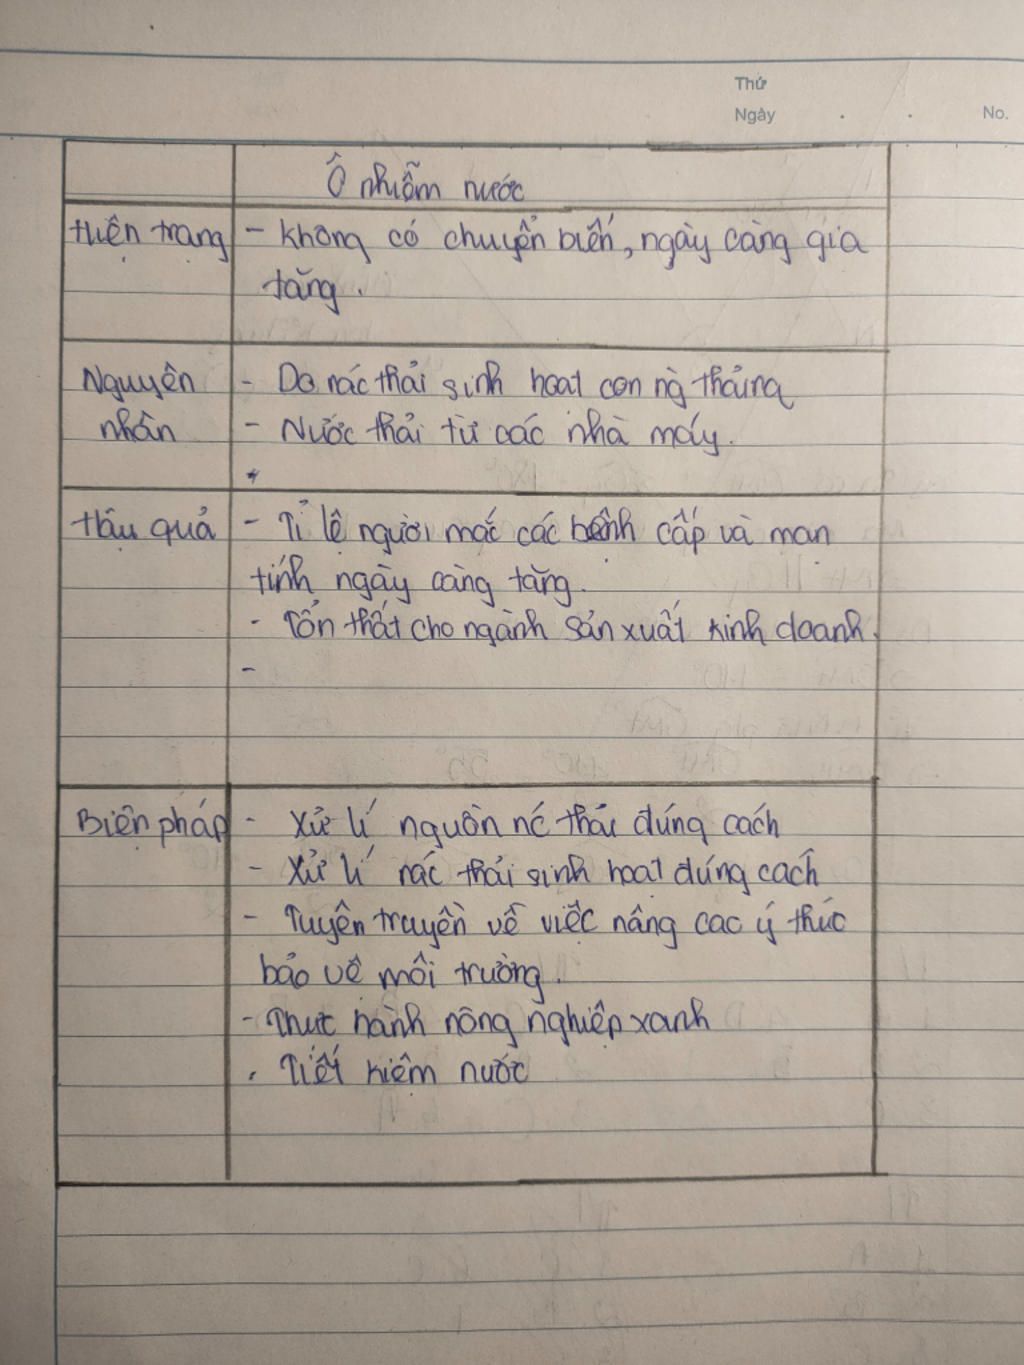 Thứ
Ngày . . No.
Ô nhiễm nước
Hiện trạng - Không có chuyển biến, ngày càng gia
tăng.
Nguyên - Do rác thải sinh hoạt con ng thải ra
nhân - Nước thải từ các nhà máy.
Hậu quả - Tỉ lệ người mắc các bệnh cấp và mạn
tính ngày càng tăng.
- Tổn thất cho ngành sản xuất kinh doanh.
-
Biện pháp - Xử lí nguồn nc thải đúng cách
- Xử lí rác thải sinh hoạt đúng cách
- Tuyên truyền về việc nâng cao ý thức
bảo vệ môi trường.
- Thực hành nông nghiệp xanh
. Tiết kiệm nước